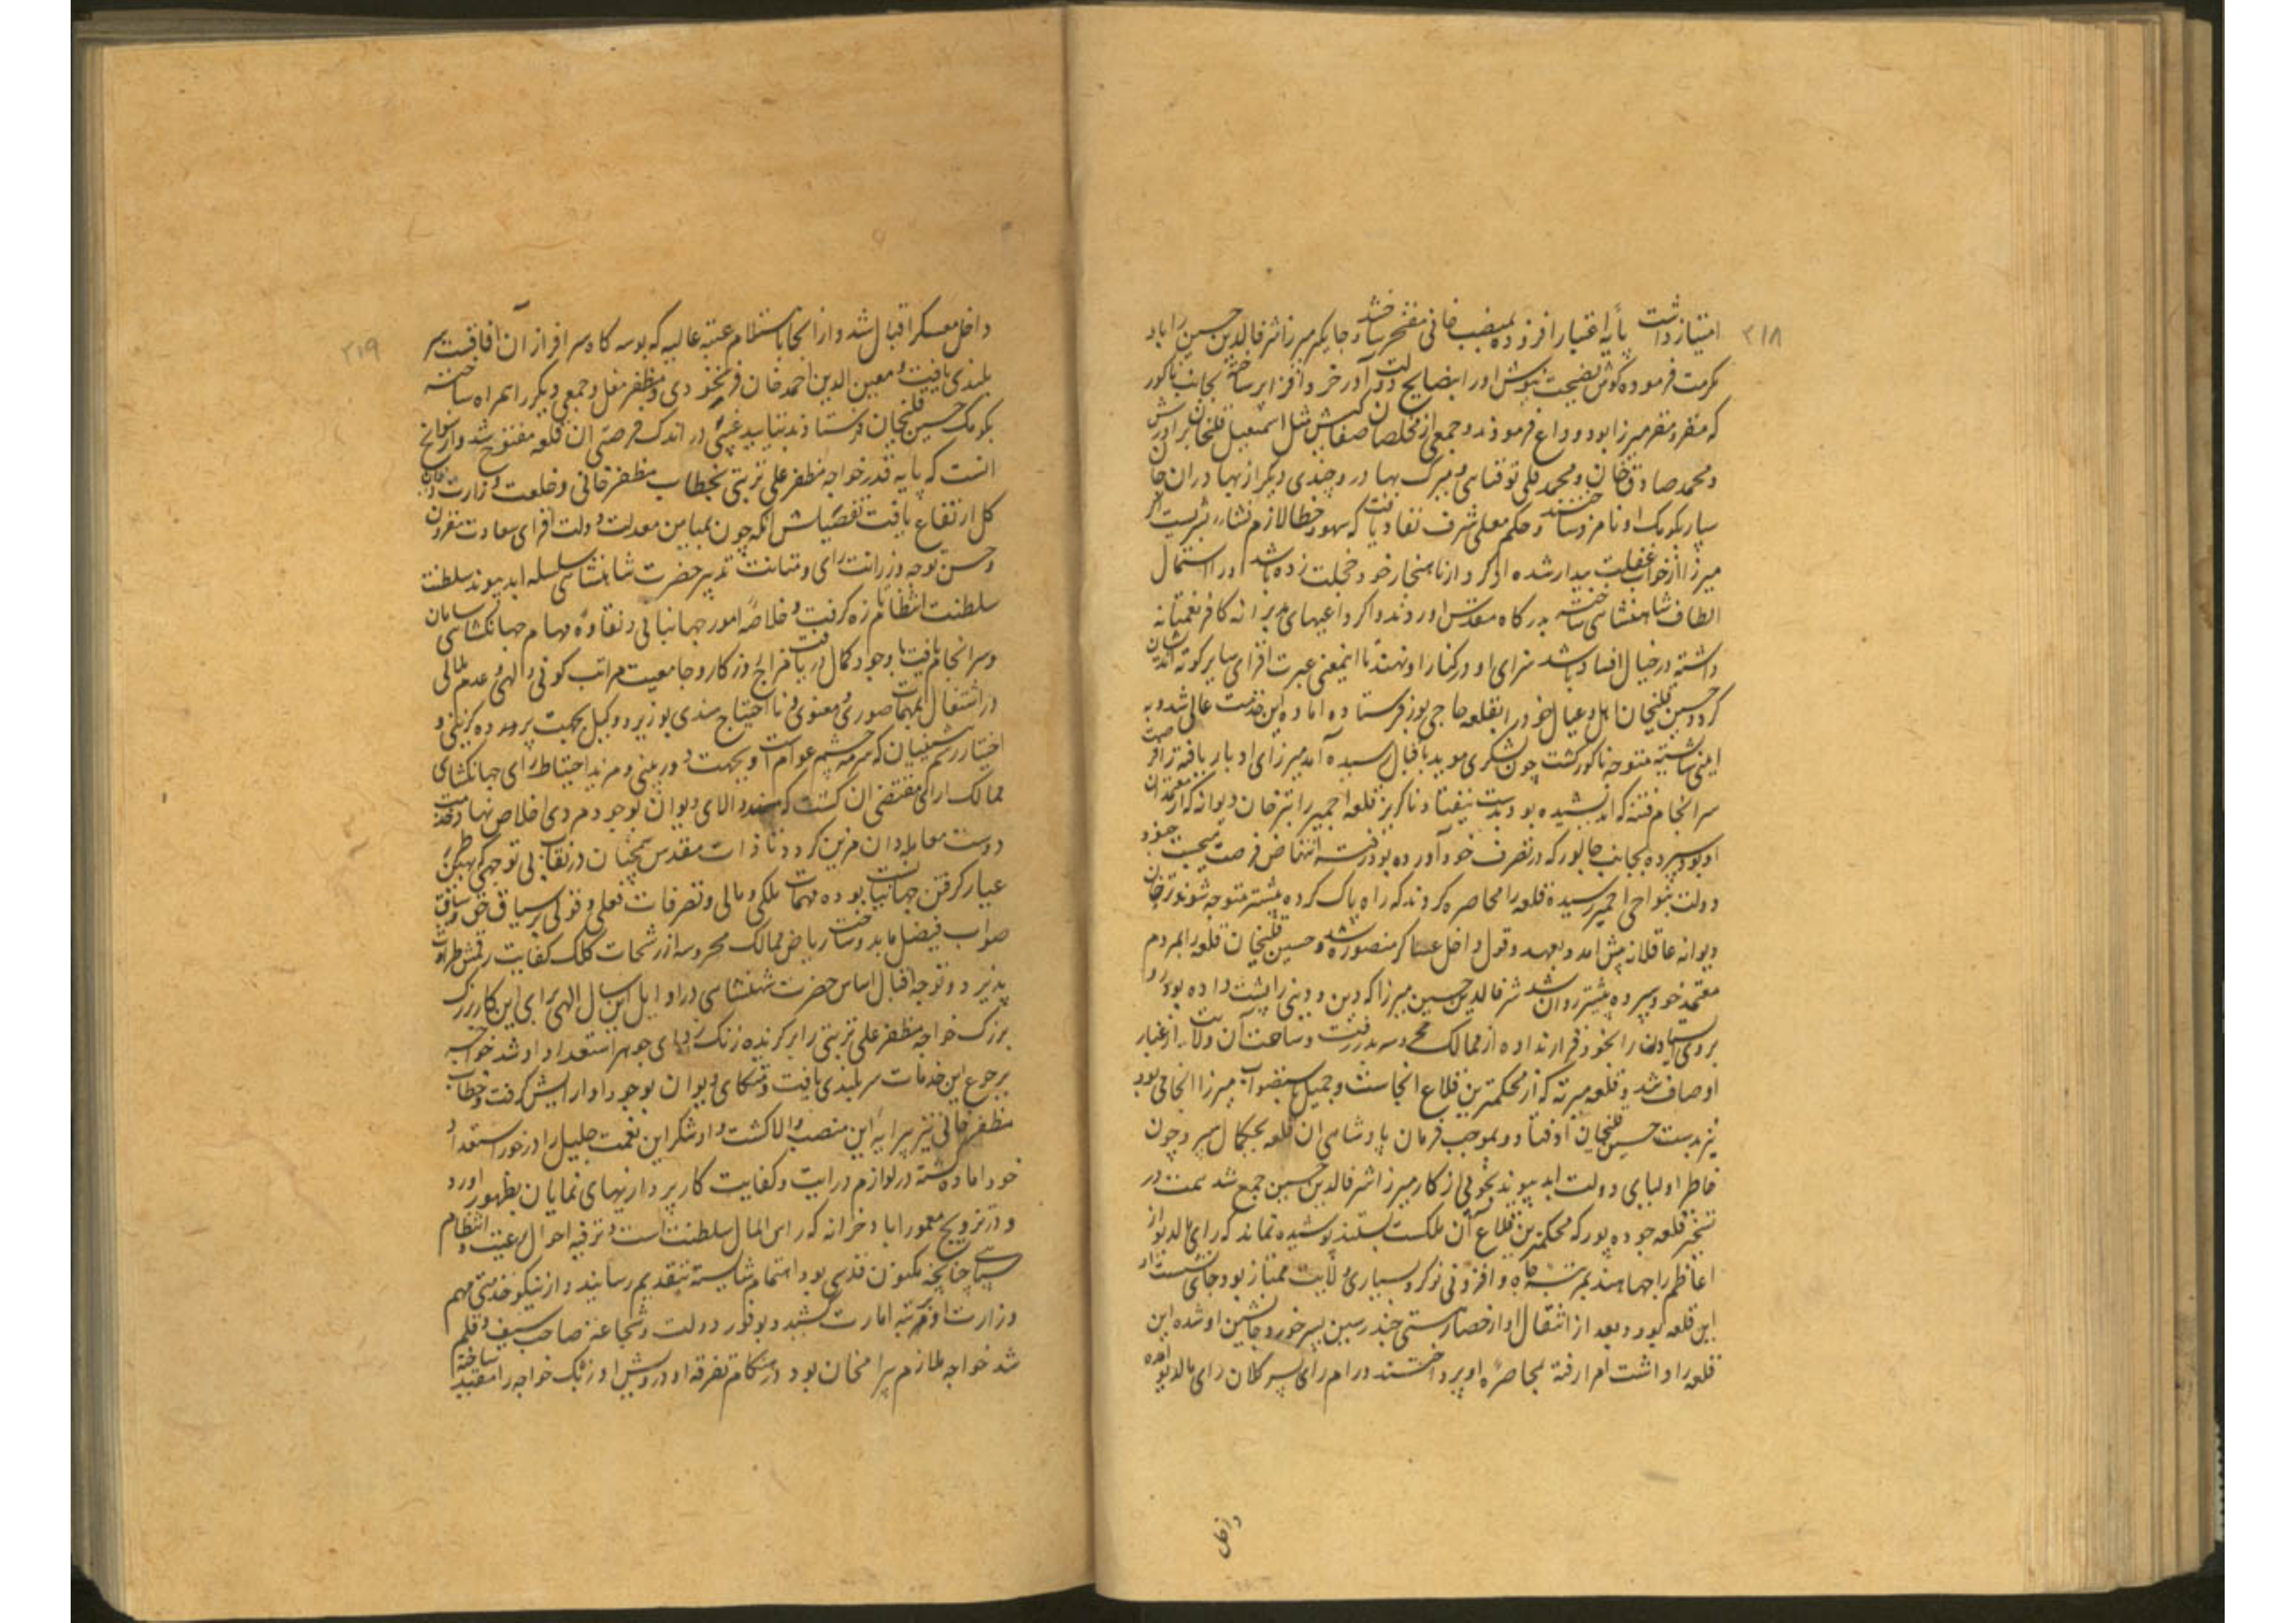 ۲۱۸
امتیاز داشت پایه اعتبار افزوده بمنصب خانی مفتخر ساخته و جایگیر میرزا شرف الدین حسین را باو
مکرمت فرموده گوش نصیحت نیوش او را بنصایح دولت آور خرد افزا برساخته بجانب ناکور
که مقر و مفر میرزا بود وداع فرمودند و جمعی از مخلصان صفاکیش مثل اسمعیل قلیخان برادرش
و محمد صادق خان و محمد قلی توقبای و میرک بهادر و چندی دیگر از بهادران جان
سپار بکومک او نامزد ساختند و حکم معلی شرف نفاذ یافت که سهو و خطا لازم نشاء بشریست اگر
میرزا از خواب غفلت بیدار شده از کردار ناهنجار خود خجلت زده باشد او را استمال
الطاف شاهنشاهی ساخته بدرگاه مقدس آورند و اگر داعیهای مدبرانه کافر نعمتانه
داشته در خیال افساد باشد سزای او در کنار او نهند تا اینمعنی عبرت افزای سایر کوته اندیشان
گردد حسین قلیخان اهل و عیال خود را بقلعه حاجی پور فرستاده آماده این خدمت عالی شد و به
آئین شایسته متوجه ناکور گشت چون لشکری موید باقبال رسیده آمد میرزای ادبار یافته را فرصت
سر انجام فتنه که اندیشیده بود بدست نیفتاد ناگریز قلعه اجمیر را بتر خان دیوانه که از معتمدان
او بود سپرده بجانب جالور که در تصرف خود آورده بود رفته انتهاض فرصت میجست جنود
دولت بنواحی اجمیر رسیده قلعه را محاصره کردند که راه پاک کرده پیشتر متوجه شوند تر خان
دیوانه عاقلانه پیش آمد و بعهد و قول داخل عساکر منصوره شد و حسین قلیخان قلعه را بمردم
معتمد خود سپرده پیشتر روان شد شرف الدین حسین میرزا که دین و دینی را پشت داده بود رو
بروی ایستادن را بخود قرار نداده از ممالک محروسه بدر رفت و ساحت آن ولایت از غبار
او صاف شد و قلعه میرته که از محکمترین قلاع آنجاست و جمیل بتصواب میرزا آنجا می بود
نیز بدست حسین قلیخان افتاد و بموجب فرمان پادشاهی آن قلعه بجکمال سپرد چون
خاطر اولیای دولت ابد پیوند بخوبی از کار میرزا شرف الدین حسین جمع شد همت در
تسخیر قلعه جوده پور که محکمترین قلاع آن ملکست بستند پوشیده نماند که رای مالدیو از
اعاظم راجهاء هند بمرتبه جاه و افزونی نوکر و بسیاری ولایت ممتاز بود جای نشست او
این قلعه بود و بعد از انتقال او از حصار هستی چندرسین پسر خورد جانشین او شده این
قلعه را داشت امرا رفته بمحاصره او پرداختند و رام رای پسر کلان رای مالدیو آمده
داخل
۲۱۹
داخل معسکر اقبال شد و از آنجا باستلام عتبه عالیه که بوسه گاه سرافرازان آفاقست سر
بلندی یافت و معین الدین احمد خان فرنخودی و مظفر مغل و جمعی دیگر را همراه ساخته
بکومک حسین قلیخان فرستادند بتایید غیبی در اندک فرصتی آن قلعه مفتوح شد و از سوانح
آنست که پایه قدر خواجه مظفر علی تربتی بخطاب مظفر خانی و خلعت وزارت دیوان
کل ارتفاع یافت تفصیلش آنکه چون بمیامن معدلت دولت افزای سعادت مقرون
و حسن توجه و رزانت رای و متانت تدبیر حضرت شاهنشاهی سلسله ابد پیوند سلطنت
سلطنت انتظام تازه گرفت و خلاصه امور جهانبانی و نقاوه مهام جهانگشایی سامان
و سرانجام یافت با وجود کمال دریافت مزاج روزگار و جامعیت مراتب کونی و الهی و عدم ملالی
در اشتغال بمهمات صوری و معنوی و نا احتیاج مندی بوزیر و وکیل بجهت پرده گزینی و
اختیار رسم پیشینیان که سرمه چشم عوام است و بجهت دوربینی و مزید احتیاط رای جهانگشای
ممالک آرای مقتضی آن گشت که مسند والای دیوان بوجود مردی اخلاص نهاد خدمت
دوست معامله دان مزین گردد تا ذات مقدس همچنان در نقاب بی توجهی بهتر کن
عیار گرفتن جهانیان بوده مهمات ملکی و مالی و تصرفات فعلی و قولی بر سیاق حق و ساقت
صواب فیصل یابد و ساحت ریاض ممالک محروسه از رشحات کلک کفایت رقمش طراوت
پذیرد و توجه اقبال اساس حضرت شهنشاهی در اوایل این سال الهی برای این کار بزرگ
بزرگ خواجه مظفر علی تربتی را برگزیده زنگ زدای جوهر استعداد او شد خواجه
برجوع این خدمات سربلندی یافت و متکای دیوان بوجود او آرایش گرفت و خطاب
مظفر خانی نیز پیرایه این منصب والا گشت و او شکر این نعمت جلیل را در خور استعداد
خود آماده گشته در لوازم درایت و کفایت کارپردازیهای نمایان بظهور آورد
و در ترویج معمور آباد خزانه که راس المال سلطنت است و ترفیه احوال رعیت و انتظام
سپاهی چنانچه مکنون قدسی بود اهتمام شایسته بتقدیم رسانید و از نیکو خدمتی مهم
وزارت او بمرتبه امارت کشید و بوفور دولت و شجاعت صاحب سیف و قلم
شد خواجه ملازم بیرامخان بود در هنگام تفرقه او درویش اوزبک خواجه را مقید ساخته